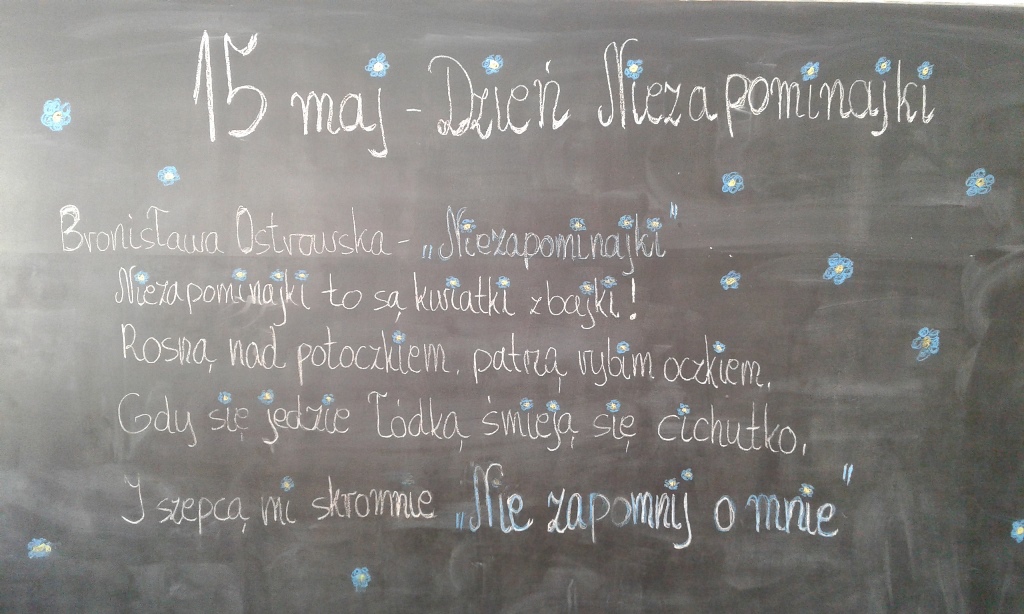 15 maj - Dzień Niezapominajki
Bronisława Ostrowska - „Niezapominajki"
Niezapominajki to są kwiatki z bajki!
Rosną nad potoczkiem, patrzą rybim oczkiem,
Gdy się jedzie łódką, śmieją się cichutko,
I szepcą mi skromnie „Nie zapomnij o mnie"